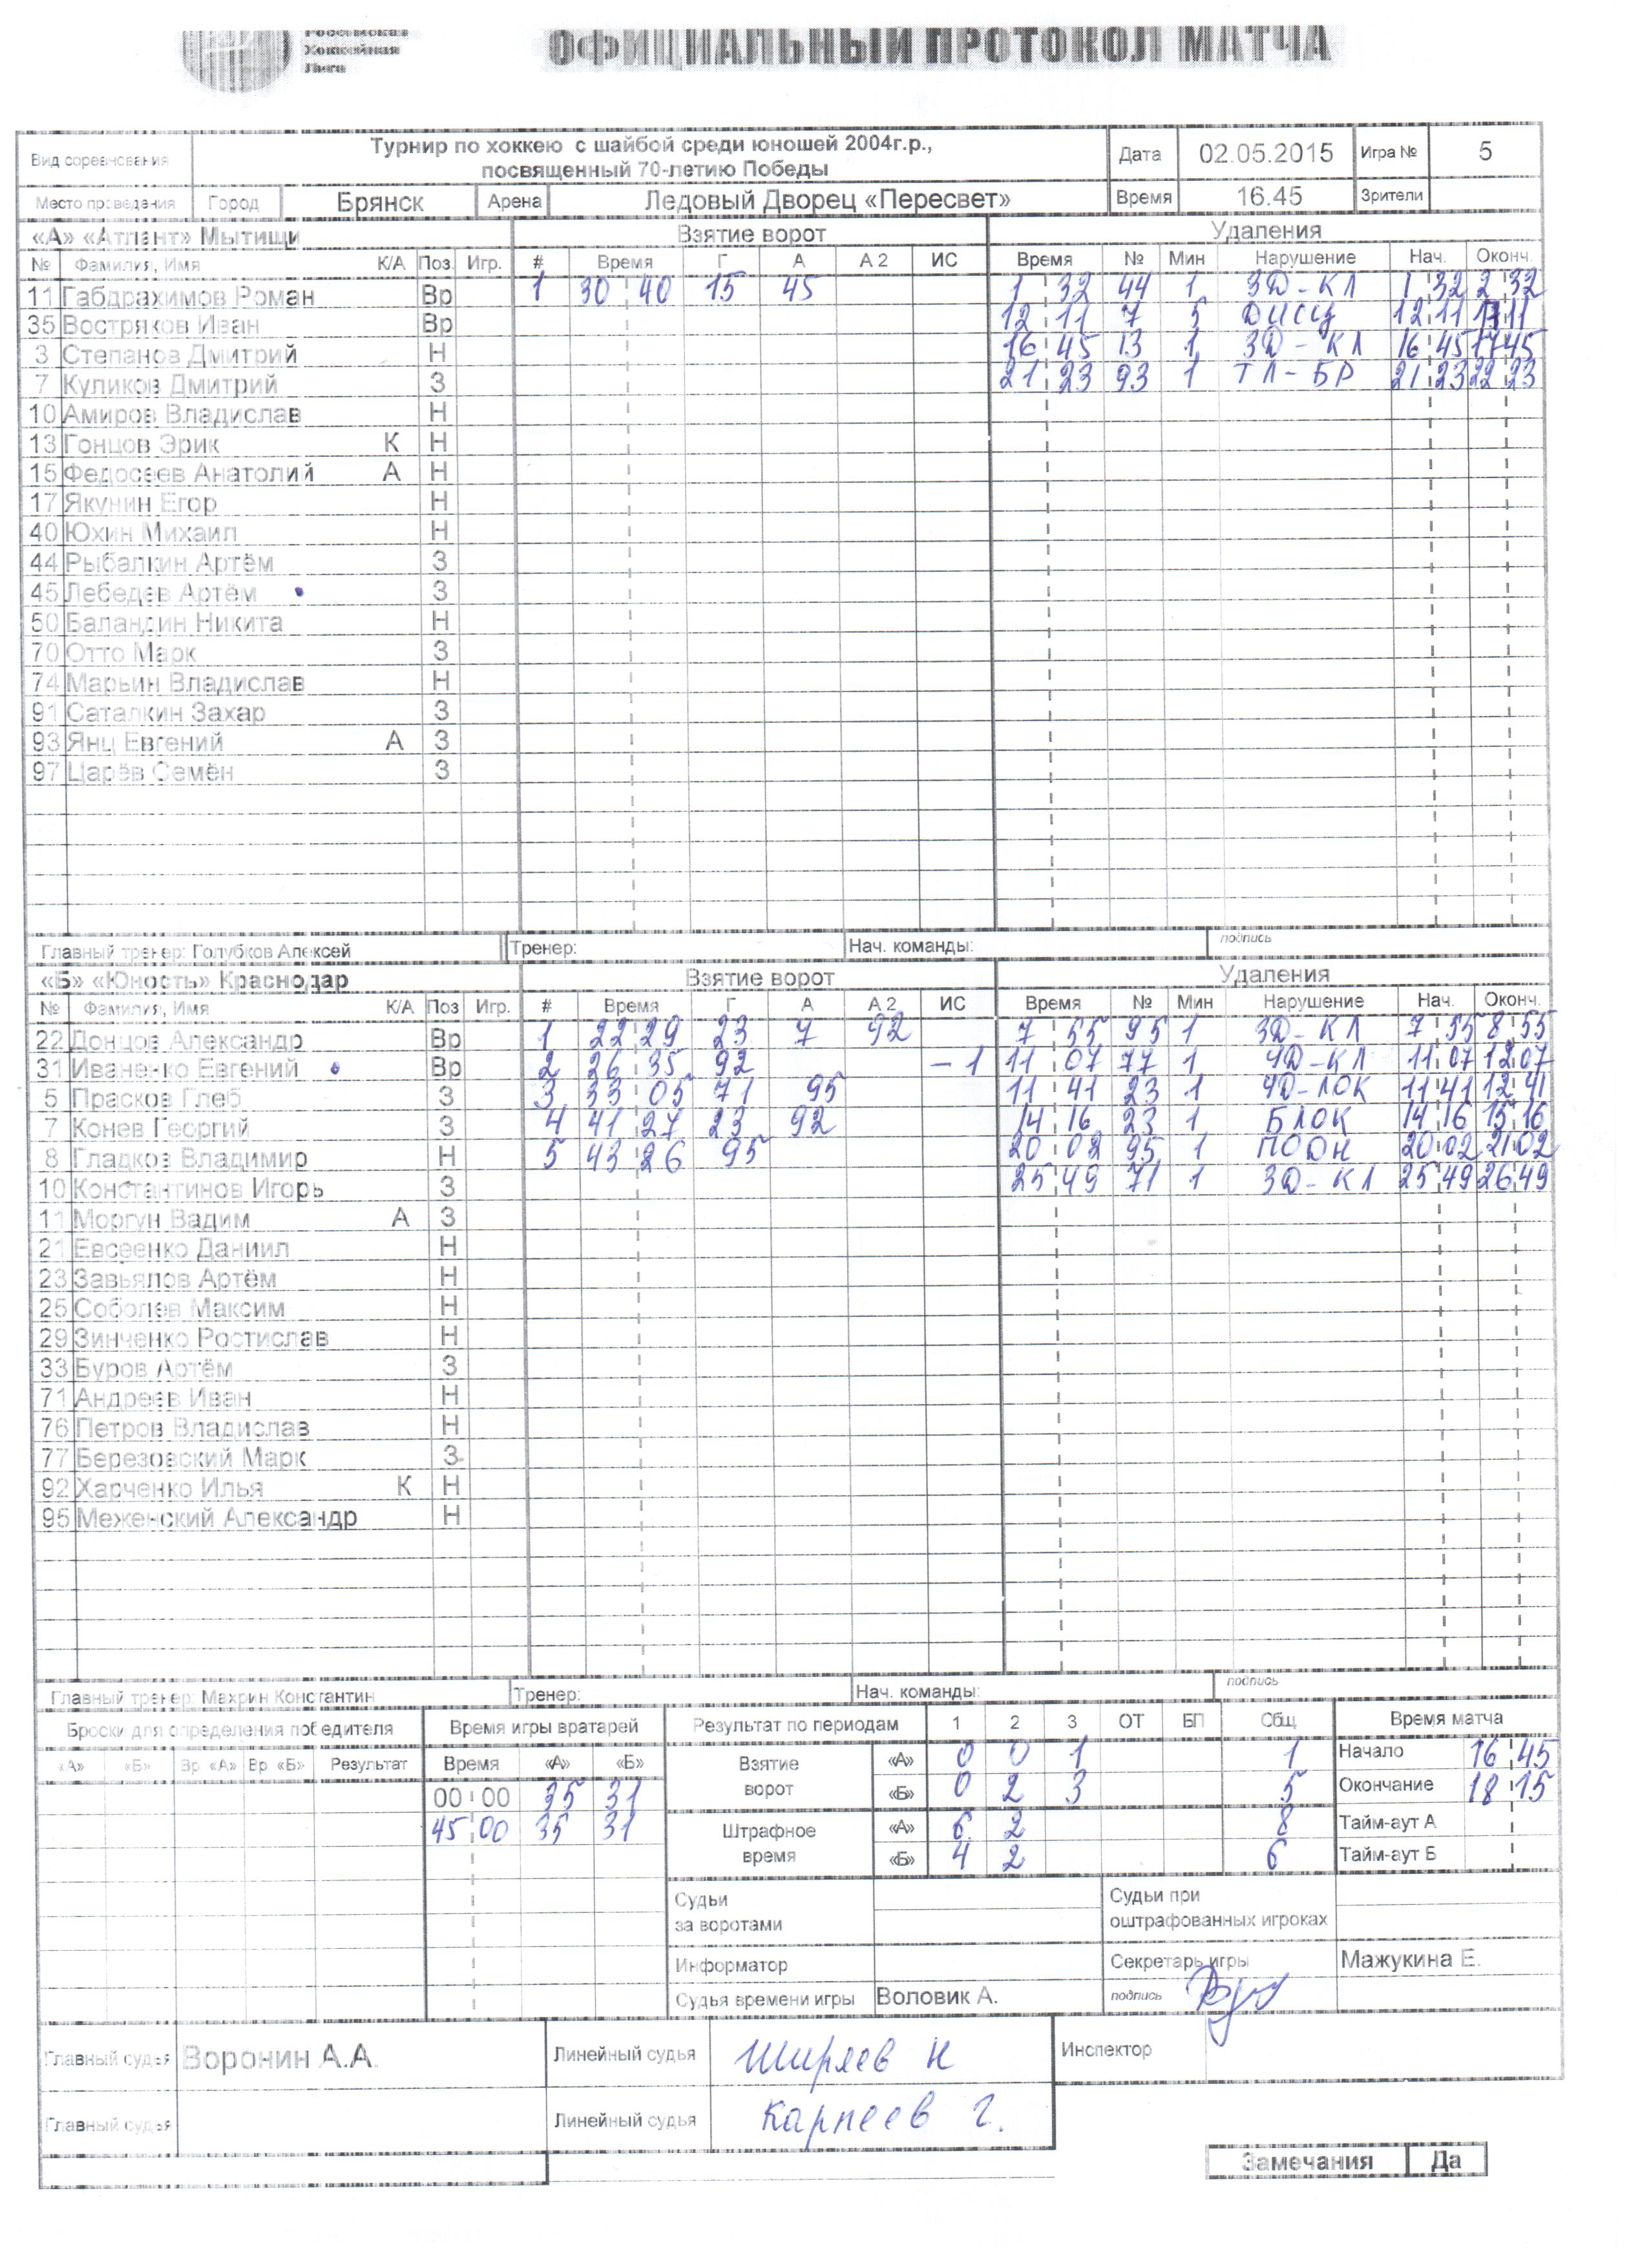 Российская
Хоккейная
Лига
ОФИЦИАЛЬНЫЙ ПРОТОКОЛ МАТЧА
Вид соревнования Турнир по хоккею с шайбой среди юношей 2004г.р., посвященный 70-летию Победы Дата 02.05.2015 Игра № 5
Место проведения Город Брянск Арена Ледовый Дворец «Пересвет» Время 16.45 Зрители
«А» «Атлант» Мытищи Взятие ворот Удаления
№ Фамилия, Имя К/А Поз. Игр. # Время Г А А 2 ИС Время № Мин Нарушение Нач. Оконч.
11 Габдрахимов Роман Вр 1 30 40 15 45 1 32 44 1 ЗД-КЛ 1 32 2 32
35 Востряков Иван Вр 12 11 7 5 ДИСЦ 12 11 17 11
3 Степанов Дмитрий Н 16 45 13 1 ЗД-КЛ 16 45 17 45
7 Куликов Дмитрий З 21 23 93 1 ТЛ-БР 21 23 22 23
10 Амиров Владислав Н
13 Гонцов Эрик К Н
15 Федосеев Анатолий А Н
17 Якунин Егор Н
40 Юхин Михаил Н
44 Рыбалкин Артём З
45 Лебедев Артём З
50 Баландин Никита Н
70 Отто Марк З
74 Марьин Владислав Н
91 Саталкин Захар З
93 Янц Евгений А З
97 Царёв Семён З
Главный тренер: Голубков Алексей Тренер: Нач. команды: подпись
«Б» «Юность» Краснодар Взятие ворот Удаления
№ Фамилия, Имя К/А Поз Игр. # Время Г А А 2 ИС Время № Мин Нарушение Нач. Оконч.
22 Донцов Александр Вр 1 22 29 23 7 92 7 55 95 1 ЗД-КЛ 7 55 8 55
31 Иваненко Евгений Вр 2 26 35 92 -1 11 07 77 1 ЧД-КЛ 11 07 12 07
5 Прасков Глеб З 3 33 05 71 95 11 41 23 1 ЧД-ЛОК 11 41 12 41
7 Конев Георгий З 4 41 27 23 92 14 16 23 1 БЛОК 14 16 15 16
8 Гладков Владимир Н 5 43 26 95 20 02 95 1 ПОДН 20 02 21 02
10 Константинов Игорь З 25 49 71 1 ЗД-КЛ 25 49 26 49
11 Моргун Вадим А З
21 Евсеенко Даниил Н
23 Завьялов Артём Н
25 Соболев Максим Н
29 Зинченко Ростислав Н
33 Буров Артём З
71 Андреев Иван Н
76 Петров Владислав Н
77 Березовский Марк З
92 Харченко Илья К Н
95 Меженский Александр Н
Главный тренер: Махрин Константин Тренер: Нач. команды: подпись
Броски для определения победителя Время игры вратарей Результат по периодам 1 2 3 ОТ БП Общ. Время матча
«А» «Б» Вр. «А» Вр. «Б» Результат Время «А» «Б» Взятие ворот «А» 0 0 1 1 Начало 16 45
00 00 35 31 «Б» 0 2 3 5 Окончание 18 15
45 00 35 31 Штрафное время «А» 6 2 8 Тайм-аут А
«Б» 4 2 6 Тайм-аут Б
Судьи за воротами Судьи при оштрафованных игроках
Информатор Секретарь игры Мажукина Е.
Судья времени игры Воловик А. подпись
Главный судья Воронин А.А. Линейный судья Ширяев Н Инспектор
Главный судья Линейный судья Карпеев Г.
Замечания Да